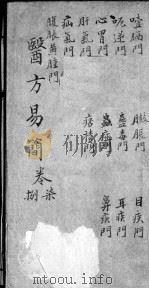 噎膈門
呃逆門
心胃門
肝氣門
疝氣門
腹脹黃膧門
醫方易簡
卷柒
捌
臌脹門
蠱毒門
蟲病門
痞積門
目疾門
耳疾門
鼻疾門
mtoou.info